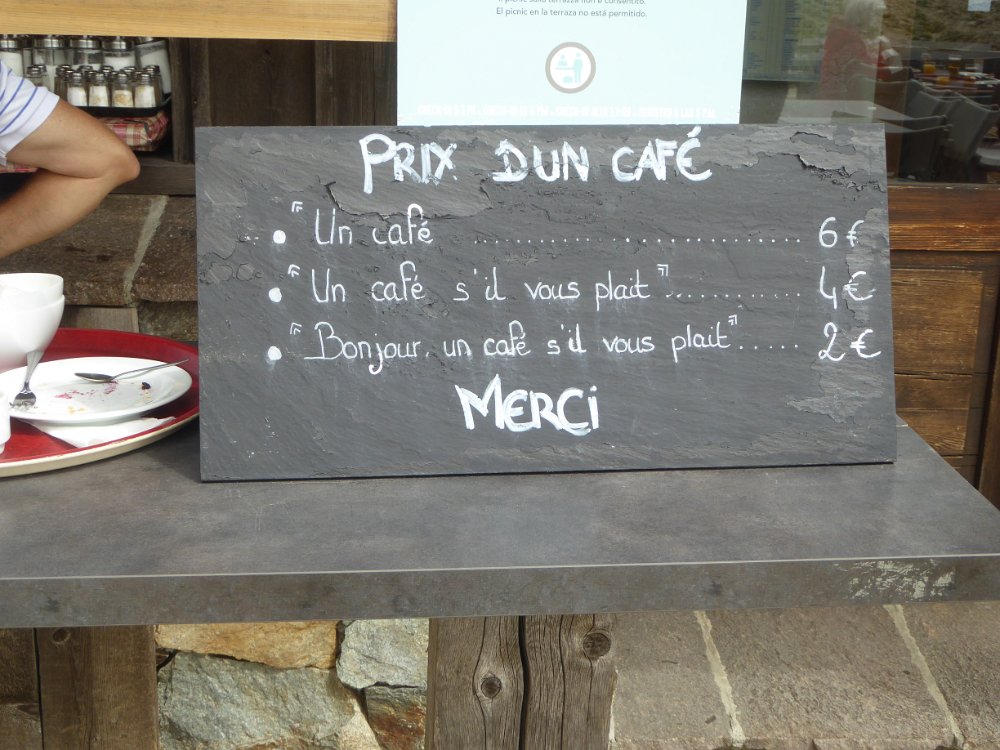 El picnic en la terraza no está permitido.
PRIX DUN CAFÉ
• "Un café .................... 6 €
• "Un café s'il vous plait".......... 4 €
• "Bonjour, un café s'il vous plait"..... 2 €
MERCi